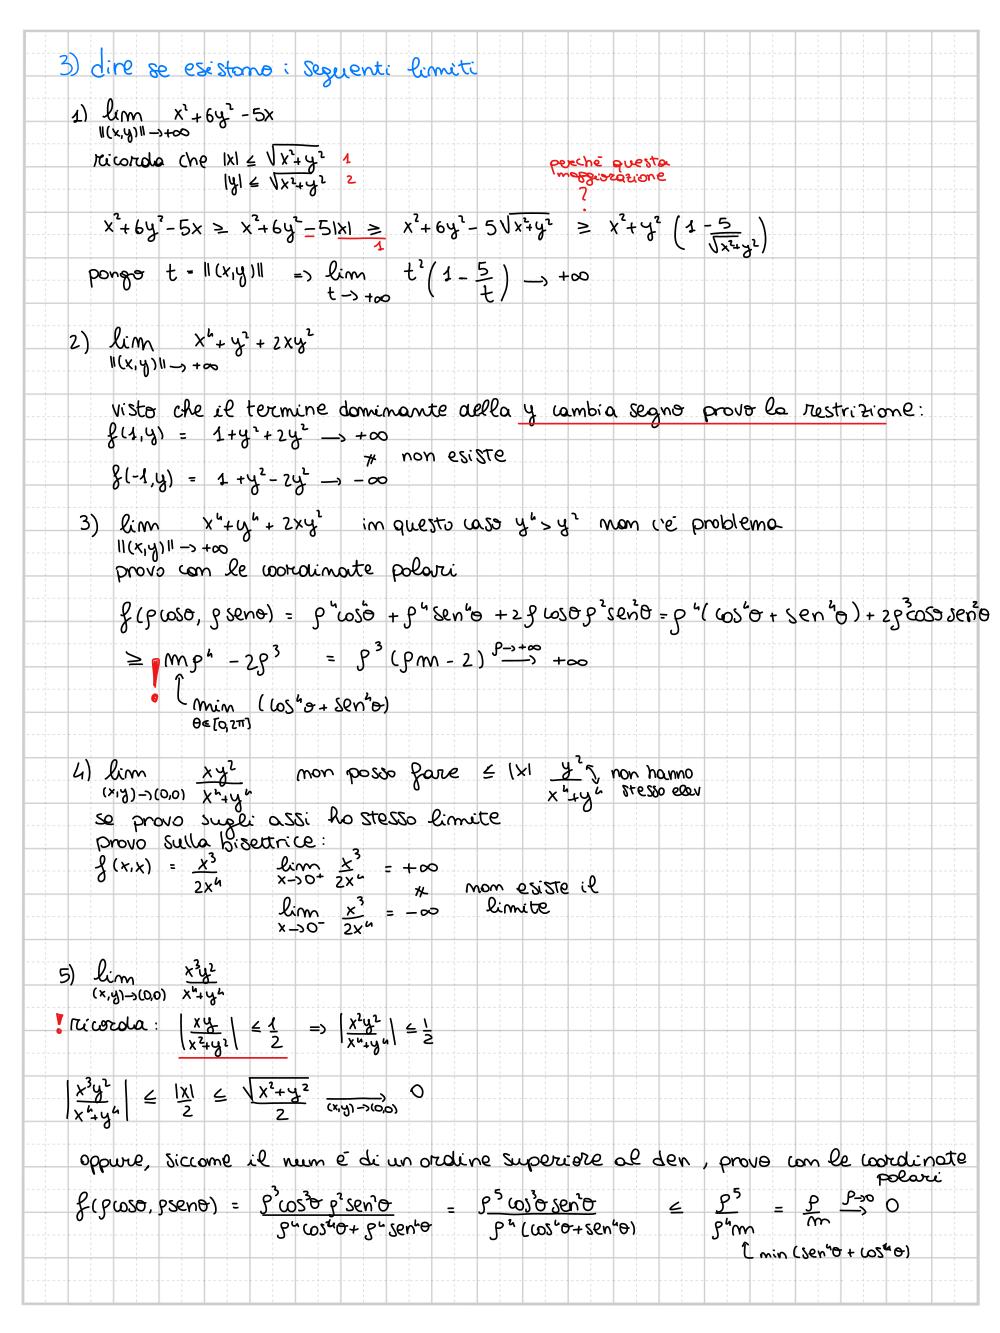 3) dire se esistono i seguenti limiti
1) lim x² + 6y² - 5x
||(x,y)|| → +∞
ricorda che |x| ≤ √x²+y² 1
|y| ≤ √x²+y² 2
perché questa
maggiorazione
?
x² + 6y² - 5x ≥ x² + 6y² - 5|x| ≥ x² + 6y² - 5√x²+y² ≥ x² + y² (1 - 5/√x²+y²)
1
pongo t = ||(x,y)|| => lim t² (1 - 5/t) → +∞
t → +∞
2) lim x⁴ + y² + 2xy²
||(x,y)|| → +∞
visto che il termine dominante della y cambia segno provo la restrizione:
f(1,y) = 1 + y² + 2y² → +∞
≠ non esiste
f(-1,y) = 1 + y² - 2y² → -∞
3) lim x⁴ + y⁴ + 2xy² in questo caso y⁴ > y² non c'è problema
||(x,y)|| → +∞
provo con le coordinate polari
f(ρcosθ, ρsenθ) = ρ⁴cos⁴θ + ρ⁴sen⁴θ + 2ρcosθρ²sen²θ = ρ⁴(cos⁴θ + sen⁴θ) + 2ρ³cosθsen²θ
≥ ! mρ⁴ - 2ρ³ = ρ³(ρm - 2) ρ→+∞ → +∞
min (cos⁴θ + sen⁴θ)
θ∈[0,2π]
4) lim xy²/x⁴+y⁴ non posso fare ≤ |x| y²/x⁴+y⁴ non hanno
(x,y)→(0,0) stesso elev
se provo sugli assi ho stesso limite
provo sulla bisettrice:
f(x,x) = x³/2x⁴ lim x→0⁺ x³/2x⁴ = +∞
≠ non esiste il
lim x→0⁻ x³/2x⁴ = -∞ limite
5) lim x³y²/x⁴+y⁴
(x,y)→(0,0)
! ricorda: |xy/x²+y²| ≤ 1/2 => |x²y²/x⁴+y⁴| ≤ 1/2
|x³y²/x⁴+y⁴| ≤ |x|/2 ≤ √x²+y²/2 → 0
(x,y)→(0,0)
oppure, siccome il num è di un ordine superiore al den, provo con le coordinate
polari
f(ρcosθ, ρsenθ) = ρ³cos³θ ρ²sen²θ/ρ⁴cos⁴θ + ρ⁴sen⁴θ = ρ⁵cos³θsen²θ/ρ⁴(cos⁴θ+sen⁴θ) ≤ ρ⁵/ρ⁴m = ρ/m ρ→0 → 0
min (sen⁴θ + cos⁴θ)